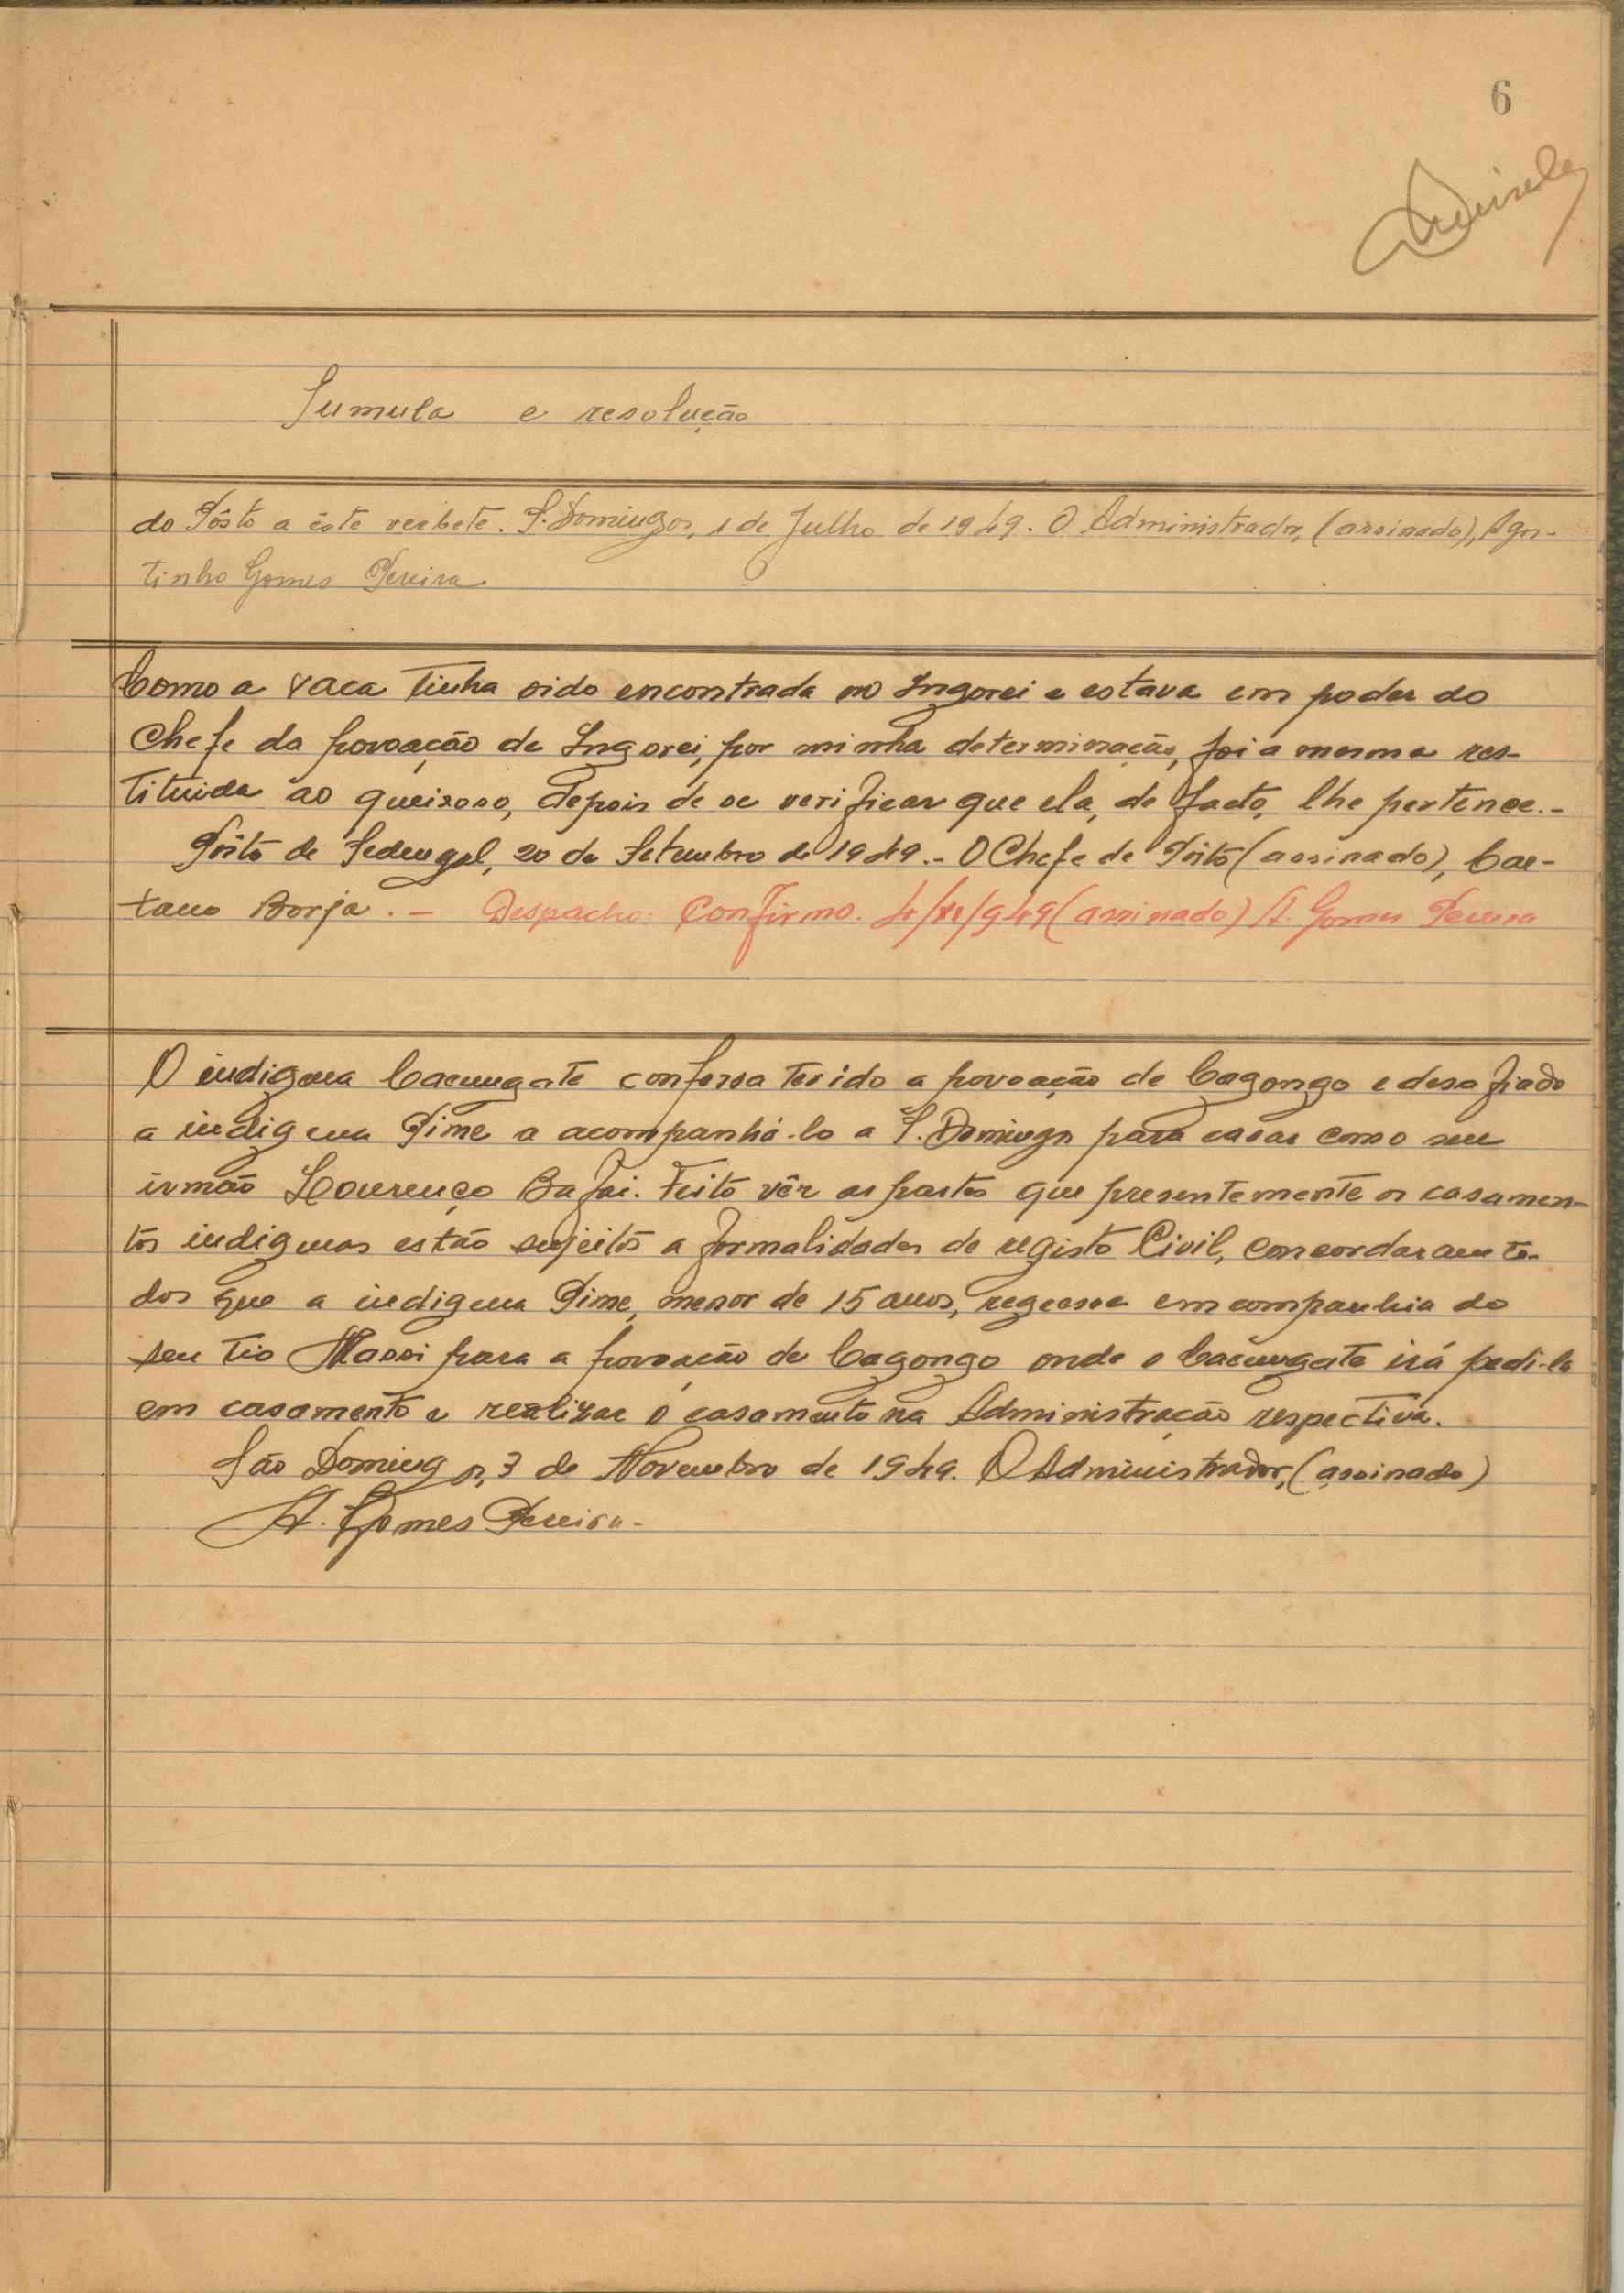 6
Sumula e resolução
do Pôsto a êste verbete. S. Domingos, 1 de Julho de 1949. O Administrador, (assinado), Agos-
tinho Gomes Pereira
Como a vaca tinha sido encontrada no Ingorei e estava em poder do
Chefe da povoação de Ingorei, por minha determinação, foi a mesma res-
tituida ao queixoso, depois de se verificar que ela, de facto, lhe pertence.-
Pôsto de Sedengal, 20 de Setembro de 1949.- O Chefe de Pôsto (assinado), Cae-
tano Borja.- Despacho: Confirmo. 4/XI/949 (assinado) A. Gomes Pereira
O indigena Cacungate confessa ter ido a povoação de Cagongo e desafiado
a indigena Pime a acompanhá-lo a S. Domingos para casar como seu
irmão Lourenço Bafai. Feito vêr as partes que presentemente os casamen-
tos indigenas estão sujeitos a formalidades de registo Civil, concordaram to-
dos que a indigena Pime, menor de 15 anos, regresse em companhia do
seu tio Massi para a povoação de Cagongo onde o Cacungate irá pedi-la
em casamento e realizar o casamento na Administração respectiva.
São Domingos, 3 de Novembro de 1949. O Administrador, (assinado)
A. Gomes Pereira.-